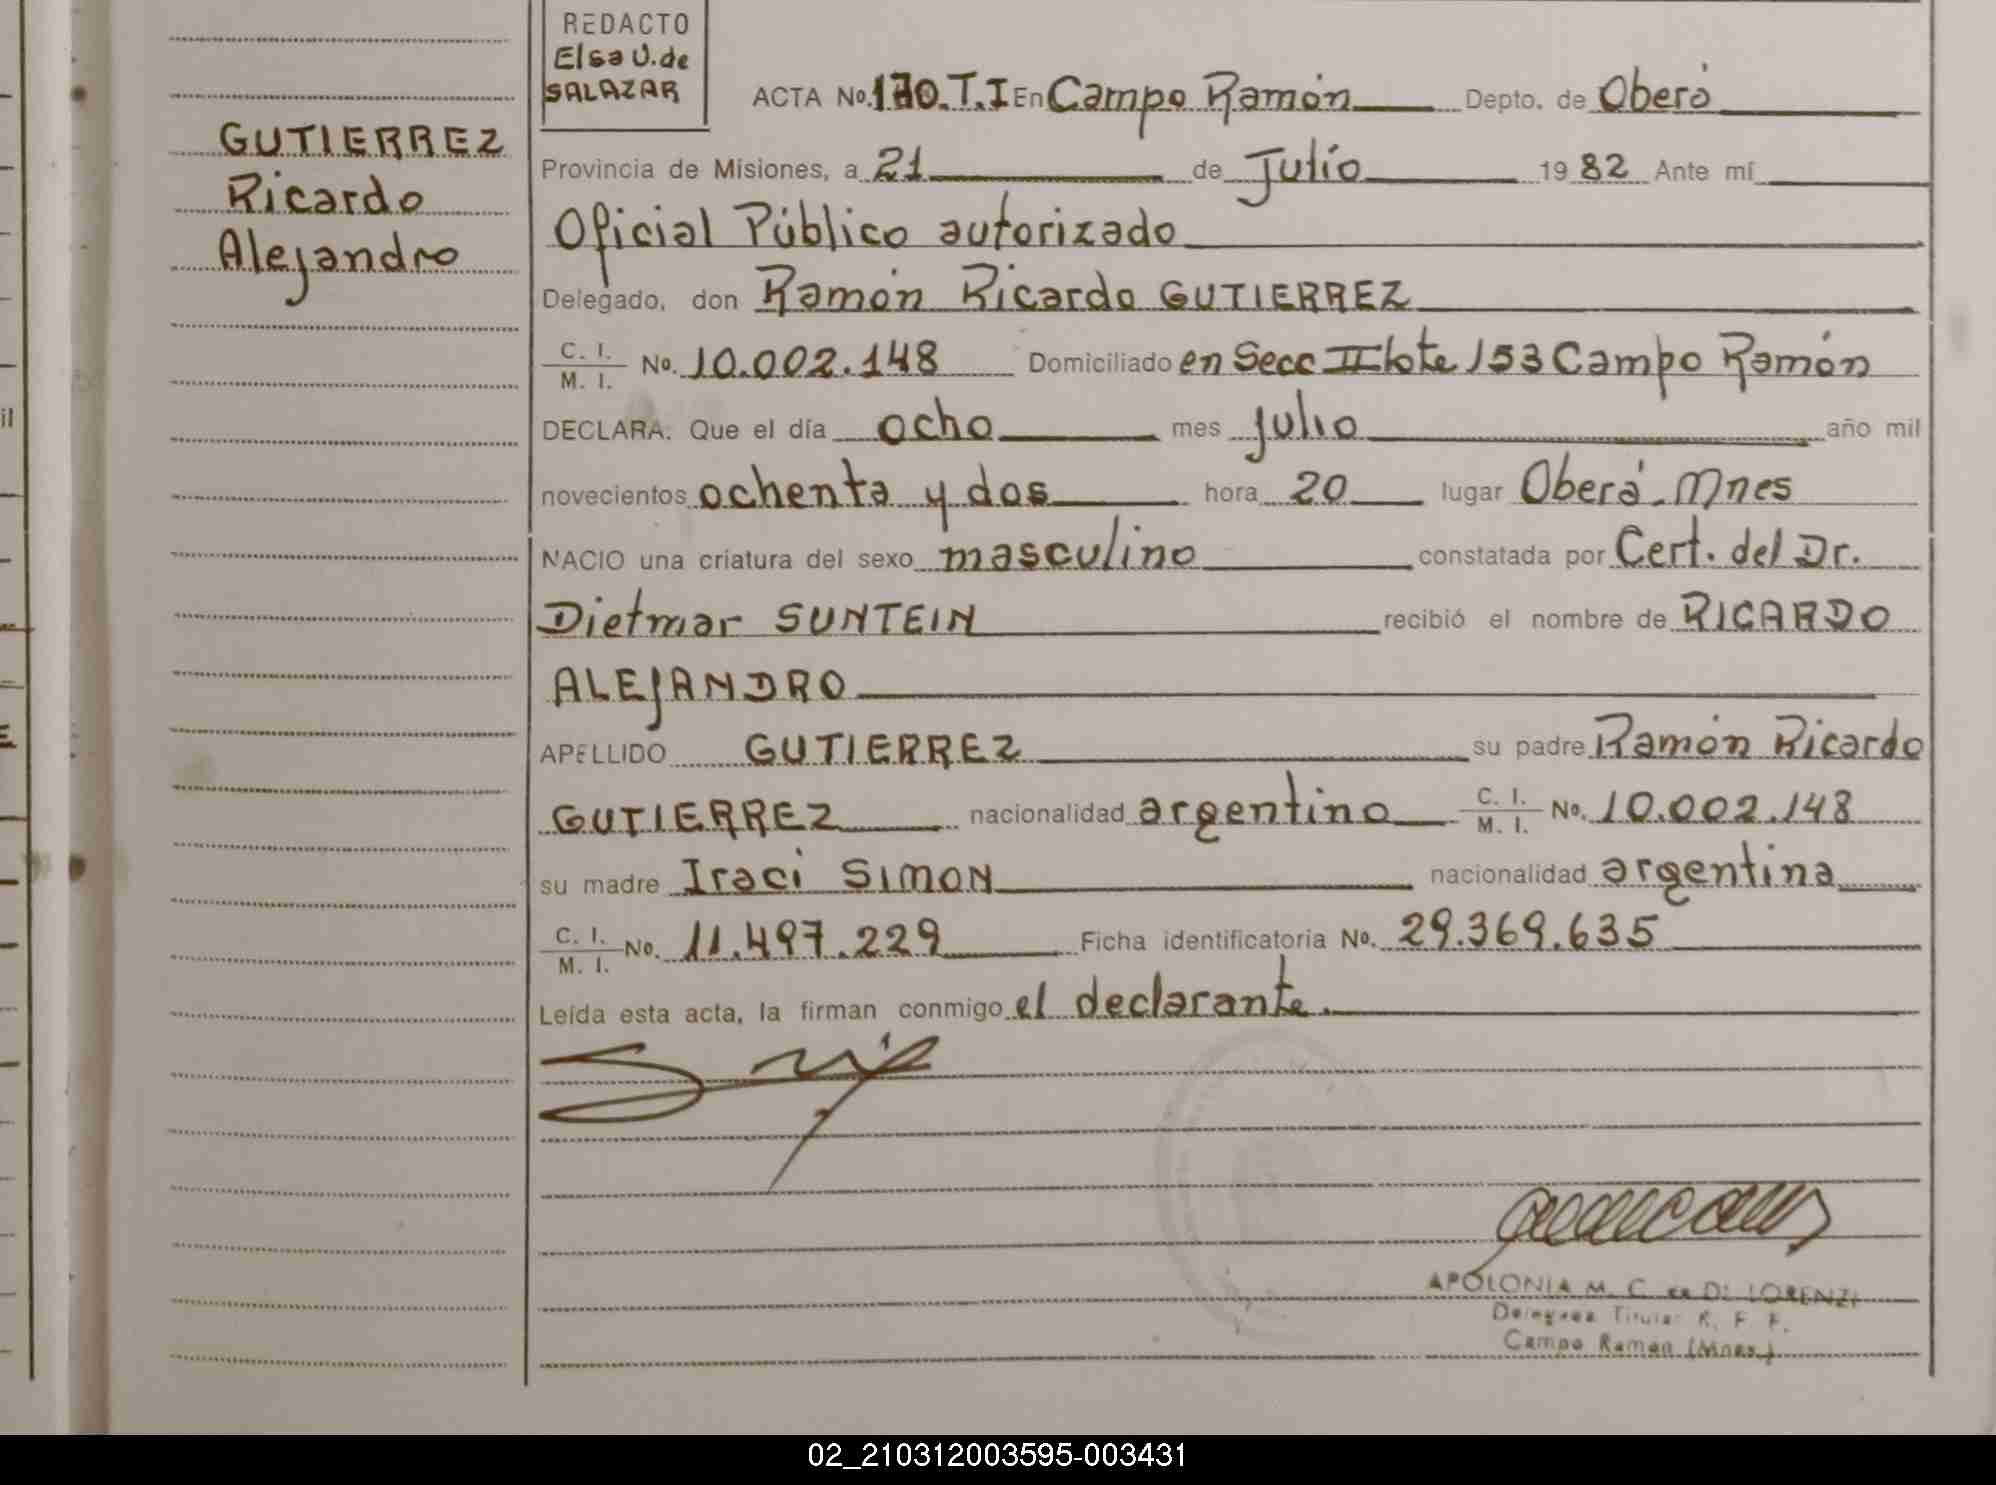 REDACTO
Elsa U. de
SALAZAR
GUTIERREZ
Ricardo
Alejandro
ACTA No. 170.T.I En Campo Ramón Depto. de Oberá
Provincia de Misiones, a 21 de Julio 1982 Ante mí
Oficial Público autorizado
Delegado, don Ramón Ricardo GUTIERREZ
C. I.
M. I. No. 10.002.148 Domiciliado en Secc II lote 153 Campo Ramón
DECLARA: Que el día ocho mes julio año mil
novecientos ochenta y dos hora 20 lugar Oberá-Mnes
NACIO una criatura del sexo masculino constatada por Cert. del Dr.
Dietmar SUNTEIN recibió el nombre de RICARDO
ALEJANDRO
APELLIDO GUTIERREZ su padre Ramón Ricardo
GUTIERREZ nacionalidad argentino C. I.
M. I. No. 10.002.148
su madre Iraci SIMON nacionalidad argentina
C. I.
M. I. No. 11.497.229 Ficha identificatoria No. 29.369.635
Leída esta acta, la firman conmigo el declarante.
APOLONIA M. C. DE DI LORENZI
Delegada Titular R. P. P.
Campo Ramón (Mnes.)
il
02_210312003595-003431